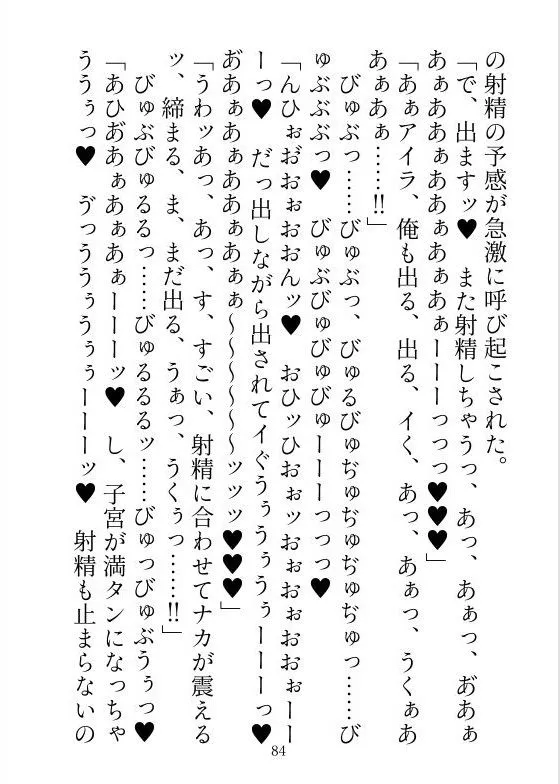 の射精の予感が急激に呼び起こされた。
「で、出ますッ♥　また射精しちゃうっ、あっ、あぁっ、あ゙あぁ
あぁああぁああぁあぁあぁーーーっっっ♥♥♥」
「あぁアイラ、俺も出る、出る、イく、あっ、あぁっ、うくぁあ
あぁあぁ……!!」
　びゅぶっ……びゅぶっ、びゅるびゅぢゅぢゅぢゅぢゅっ……び
ゅぶぶぶっ♥　びゅぶびゅびゅびゅーーーっっっ♥
「んひぉお゙おぉおおんッ♥　おひッひおぉッおぉおぉおおぉーー
ーっ♥　だっ出しながら出されてイぐうぅうぅうぅーーーっ♥
あ゙あぁあぁああぁあぁぁ～～～～～～ッッッ♥♥♥」
「うわッあっ、あっ、す、すごい、射精に合わせてナカが震える
ッ、締まる、ま、まだ出る、うぁっ、うくぅっ……!!」
　びゅぶびゅるるっ……びゅるるるッ……びゅっびゅぶうぅっ♥
「あひあ゙あぁあぁあぁーーーッ♥　し、子宮が満タンになっちゃ
ううぅっ♥　ゔっううぅうぅぅーーーッ♥　射精も止まらないの
84